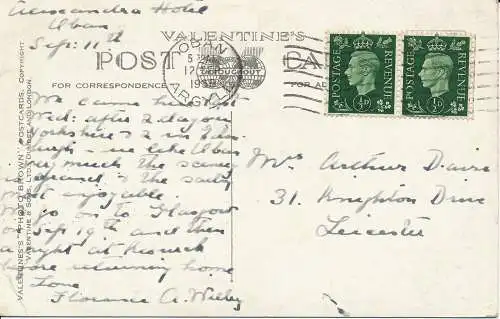 Alexandra Hotel
Oban
Sep: 11th
VALENTINE'S
POST CA
FOR CORRESPONDENCE
FOR AD
OBAN
12
19
ARG
THROUGHOUT
POSTAGE REVENUE
½D
POSTAGE REVENUE
½D
VALENTINE'S "PHOTO BROWN" POSTCARDS. COPYRIGHT.
VALENTINE & SONS, LTD., DUNDEE AND LONDON.
We came here last
Wed: after 2 days in
Yorkshire & 2 in Edin
burgh - we like Oban
very much the scenery
is grand & the sails
most enjoyable.
We go on to Glasgow
on Sep 19th and then
a night at Keswick
before returning home
Love
Florence A. Wilby
Mrs Arthur Davis
31. Knighton Drive
Leicester